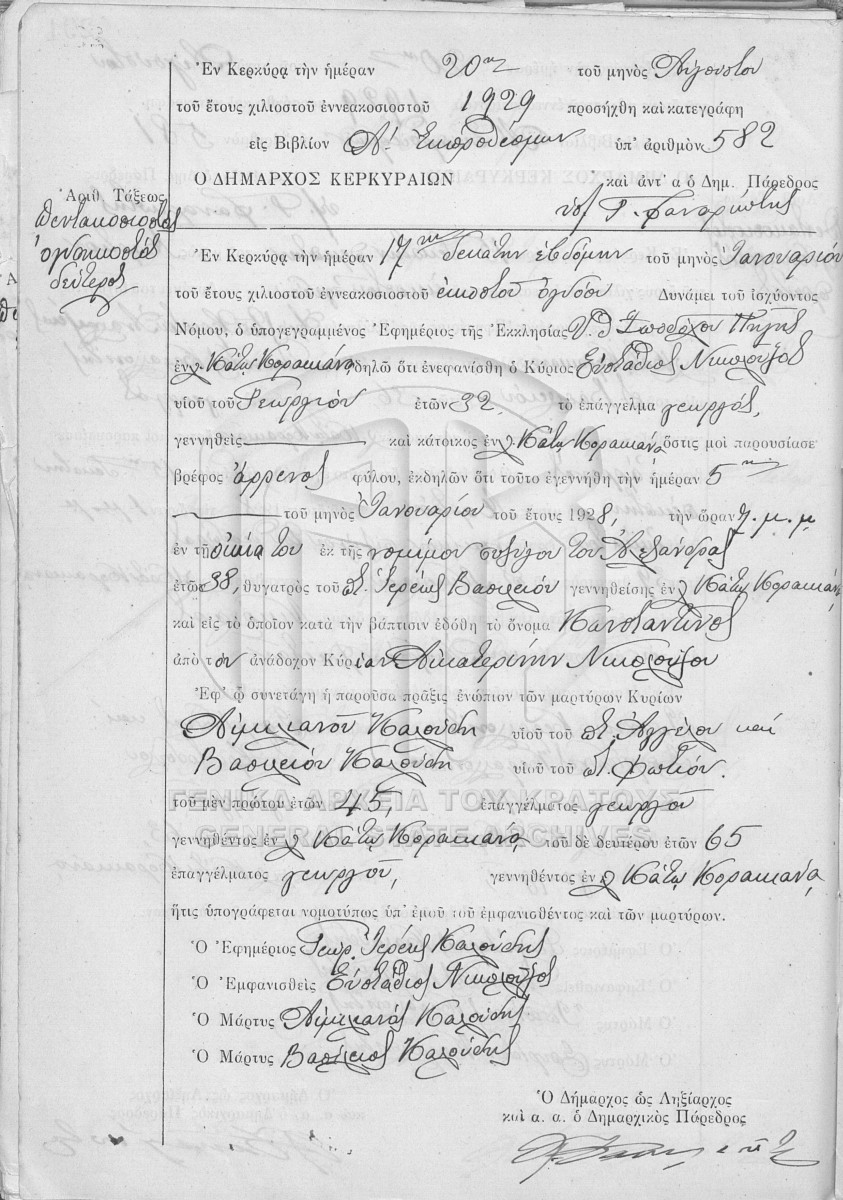 Ἐν Κερκύρᾳ τὴν ἡμέραν 20ην τοῦ μηνὸς Αὐγούστου
τοῦ ἔτους χιλιοστοῦ ἐννεακοσιοστοῦ 1929 προσήχθη καὶ κατεγράφη
εἰς Βιβλίον Α΄. Ἐκπροθέσμων ὑπ' ἀριθμὸν 582
Ο ΔΗΜΑΡΧΟΣ ΚΕΡΚΥΡΑΙΩΝ καὶ ἀντ' α ὁ Δημ. Πάρεδρος
Ἀριθ. Τάξεως
πεντακοσιοστὸς
ὀγδοηκοστὸς
δεύτερος
Ἐν Κερκύρᾳ τὴν ἡμέραν 17ην δεκάτην ἑβδόμην τοῦ μηνὸς Ἰανουαρίου
τοῦ ἔτους χιλιοστοῦ ἐννεακοσιοστοῦ εἰκοστοῦ ὀγδόου Δυνάμει τοῦ ἰσχύοντος
Νόμου, ὁ ὑπογεγραμμένος Ἐφημέριος τῆς Ἐκκλησίας Ζωοδόχου Πηγῆς
ἐν Κάτω Κορακιάνα, δηλῶ ὅτι ἐνεφανίσθη ὁ Κύριος Εὐστάθιος Νικολοῦζος
υἱοῦ τοῦ Γεωργίου ἐτῶν 32. τὸ ἐπάγγελμα γεωργός,
γεννηθεὶς καὶ κάτοικος ἐν Κάτω Κορακιάνα, ὅστις μοὶ παρουσίασε
βρέφος ἄρρενος φύλου, ἐκδηλῶν ὅτι τοῦτο ἐγεννήθη τὴν ἡμέραν 5ην
τοῦ μηνὸς Ἰανουαρίου τοῦ ἔτους 1928, τὴν ὥραν 7. μ. μ.
ἐν τῇ οἰκίᾳ του ἐκ τῆς νομίμου συζύγου του Ἀλεξάνδρας
ἐτῶν 38, θυγατρὸς τοῦ Ἱερέως Βασιλείου γεννηθείσης ἐν Κάτω Κορακιάνα,
καὶ εἰς τὸ ὁποῖον κατὰ τὴν βάπτισιν ἐδόθη τὸ ὄνομα Κωνσταντῖνος
ἀπὸ τὸν ἀνάδοχον Κυρίαν Αἰκατερίνην Νικολούζου
Ἐφ' ᾧ συνετάγη ἡ παροῦσα πρᾶξις ἐνώπιον τῶν μαρτύρων Κυρίων
Αἰμιλιανοῦ Καλούδη υἱοῦ τοῦ Ἀγγέλου καὶ
Βασιλείου Καλούδη υἱοῦ τοῦ Φωτίου.
ΓΕΝΙΚΑ ΑΡΧΕΙΑ ΤΟΥ ΚΡΑΤΟΥΣ
τοῦ μὲν πρώτου ἐτῶν 45, ἐπαγγέλματος γεωργοῦ
GENERAL STATE ARCHIVES
γεννηθέντος ἐν Κάτω Κορακιάνα, τοῦ δὲ δευτέρου ἐτῶν 65
ἐπαγγέλματος γεωργοῦ, γεννηθέντος ἐν Κάτω Κορακιάνα,
ἥτις ὑπογράφεται νομοτύπως ὑπ' ἐμοῦ τοῦ ἐμφανισθέντος καὶ τῶν μαρτύρων.
Ὁ Ἐφημέριος Γεώρ. Ἱερεὺς Καλούδης
Ὁ Ἐμφανισθεὶς Εὐστάθιος Νικολοῦζος
Ὁ Μάρτυς Αἰμιλιανὸς Καλούδης
Ὁ Μάρτυς Βασίλειος Καλούδης
Ὁ Δήμαρχος ὡς Ληξίαρχος
καὶ α. α. ὁ Δημαρχικὸς Πάρεδρος